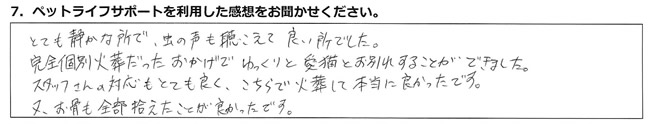 7．ペットライフサポートを利用した感想をお聞かせください。
とても静かな所で、虫の声も聴こえて良い所でした。
完全個別火葬だったおかげでゆっくりと愛猫とお別れすることができました。
スタッフさんの対応もとても良く、こちらで火葬して本当に良かったです。
又、お骨も全部拾えたことが良かったです。